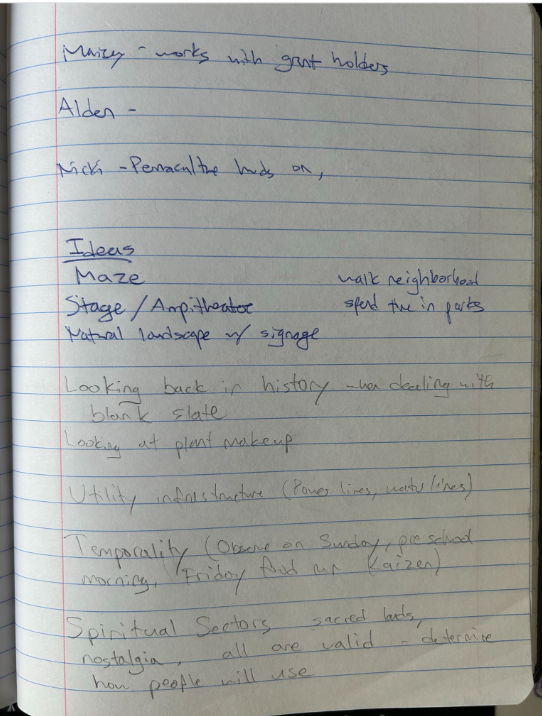 Maizy - works with grant holders
Alden -
Nicki - Permaculture hands on,
Ideas
Maze
walk neighborhood
Stage / Ampitheator
spend time in parks
Natural landscape w/ signage
Looking back in history - when dealing with
blank slate
Looking at plant makeup
Utility infrastructure (Power lines, water lines)
Temporality (Observe on Sunday, pre school
morning, Friday food run (Kaizen)
Spiritual Sectors sacred lands,
nostalgia, all are valid - determine
how people will use